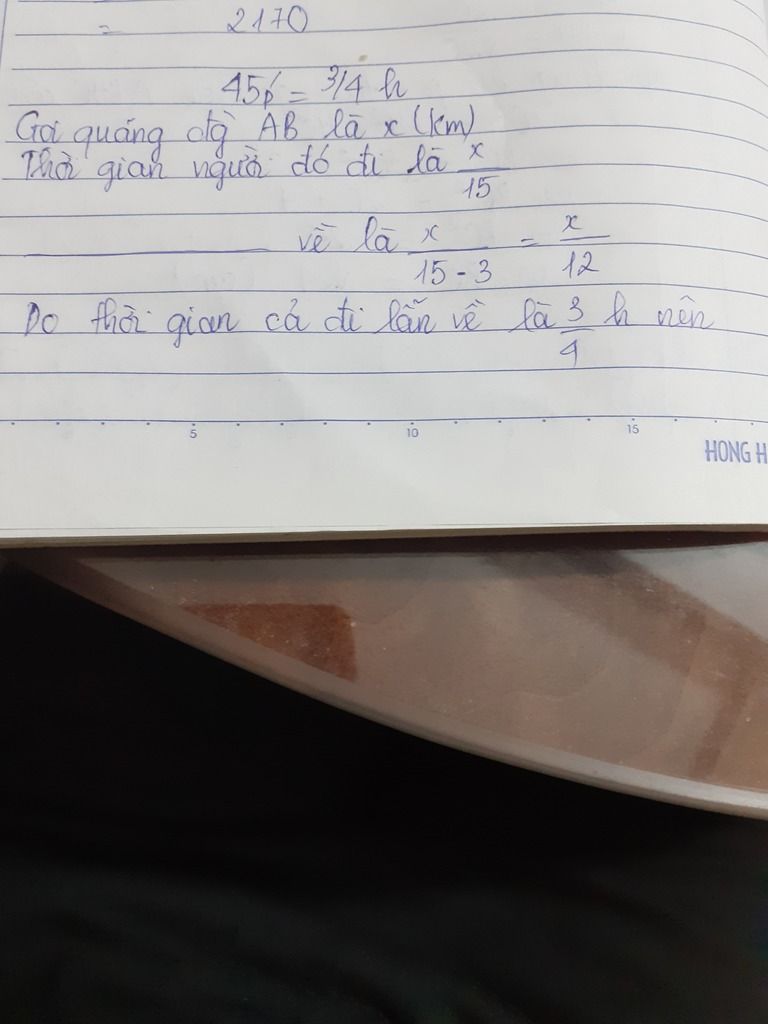 = 2170
45p' = 3/4 h
Gọi quãng đg AB là x (km)
Thời gian người đó đi là x/15
——— về là x/15-3 = x/12
Do thời gian cả đi lẫn về là 3/4 h nên
5 10 15
HONG H